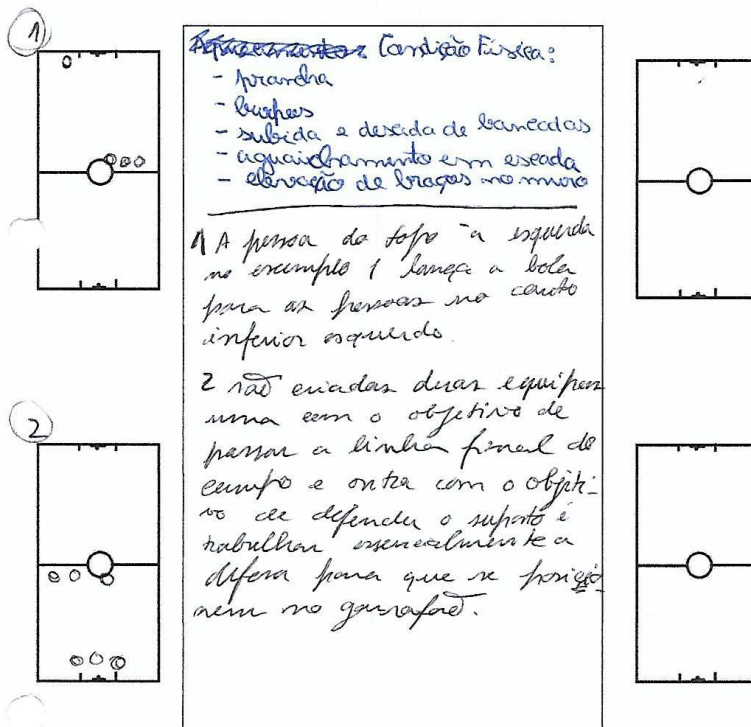 1
Condição Física:
- prancha
- burpees
- subida e descida de bancadas
- aguaichamento em escada
- elevação de braços no muro
1 A pessoa do topo à esquerda
no exemplo 1 lança a bola
para as pessoas no canto
inferior esquerdo.
2
2 são criadas duas equipas
uma com o objetivo de
passar a linha final do
campo e outra com o objeti-
vo de defender o suposto é
trabalhar essencialmente a
defesa para que se posicio
nem no garrafão.